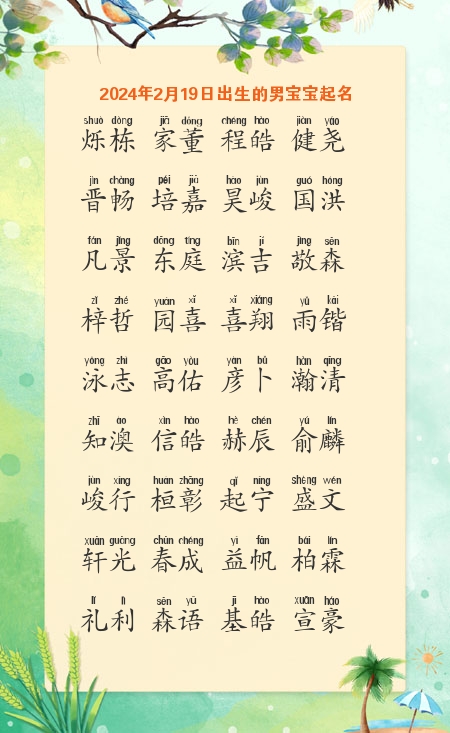 2024年2月19日出生的男宝宝起名
shuò dòng jiā dǒng chéng hào jiàn yáo
烁栋 家董 程皓 健尧
jìn chàng péi jiā hào jùn guó hóng
晋畅 培嘉 昊峻 国洪
fán jǐng dōng tíng bīn jí jìng sēn
凡景 东庭 滨吉 敬森
zǐ zhé yuán xǐ xǐ xiáng yǔ kǎi
梓哲 园喜 喜翔 雨锴
yǒng zhì gāo yòu yàn bǔ hàn qīng
泳志 高佑 彦卜 瀚清
zhī ào xìn hào hè chén yú lín
知澳 信皓 赫辰 俞麟
jùn xíng huán zhāng qǐ níng shèng wén
峻行 桓彰 起宁 盛文
xuān guāng chūn chéng yì fān bǎi lín
轩光 春成 益帆 柏霖
lǐ lì sēn yǔ jī hào xuān háo
礼利 森语 基皓 宣豪